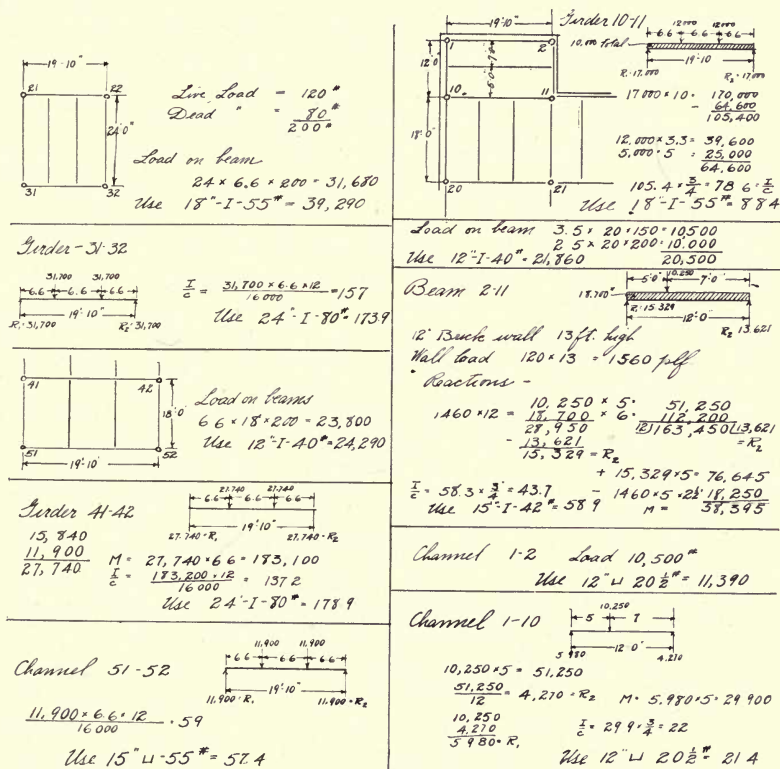 19'-10"
21 22
24'-0"
31 32
Live Load = 120#
Dead " = 80#
200#
Load on beam
24 × 6.6 × 200 = 31,680
Use 18"-I-55# = 39,290
Girder-31-32
31,700 31,700
6.6 6.6 6.6
19'-10"
R1=31,700 R2=31,700
I/c = 31,700 × 6.6 × 12 / 16000 = 157
Use 24"-I-80# = 173.9
41 42
18'-0"
51 52
19'-10"
Load on beams
6.6 × 18 × 200 = 23,800
Use 12"-I-40# = 24,290
Girder 41-42
27.740 27.740
6.6 6.6 6.6
19'-10"
27.740=R1 27.740=R2
15,840
11,900
27,740
M = 27,740 × 6.6 = 183,100
I/c = 183,200 × 12 / 16000 = 137.2
Use 24"-I-80# = 178.9
Channel 51-52
11,900 11,900
6.6 6.6 6.6
19'-10"
11,900=R1 11,900=R2
11,900 × 6.6 × 12 / 16000 = 59
Use 15"⊔-55# = 57.4
19'-10"
Girder 10-11
1 2
12'0"
5'0" 7'0"
10 11
18'-0"
20 21
12000 12000
6.6 6.6 6.6
10.000 total
19-10
R1=17,000 R2=17,000
17000 × 10 = 170,000
- 64,600
105,400
12,000 × 3.3 = 39,600
5,000 × 5 = 25,000
64,600
105.4 × 3/4 = 78.6 = I/c
Use 18"-I-55# = 88.4
Load on beam 3.5 × 20 × 150 = 10500
2.5 × 20 × 200 = 10.000
Use 12"-I-40# = 21,860 20,500
Beam 2-11
5'0" 10,250 7'0"
18.700#
R1=15.329
12'0"
R2 13.621
12" Brick wall 13 ft. high
Wall load 120 × 13 = 1560 plf
Reactions -
10,250 × 5 = 51,250
1460 × 12 = 18,700 × 6 = 112,200
28,950 12)163,450(13,621
- 13,621 = R2
15,329 = R2
+ 15,329 × 5 = 76,645
I/c = 58.3 × 3/4 = 43.7 - 1460 × 5 × 2½ 18,250
Use 15"-I-42# = 58.9 M = 58,395
Channel 1-2 Load 10,500#
Use 12"⊔ 20½# = 11,390
Channel 1-10
10,250
5 7
12'-0"
5980 4,210
10,250 × 5 = 51,250
51,250 / 12 = 4,270 = R2 M = 5,980 × 5 = 29900
10,250
4,270
5980 = R1
I/c = 29.9 × 3/4 = 22
Use 12"⊔ 20½# = 21.4